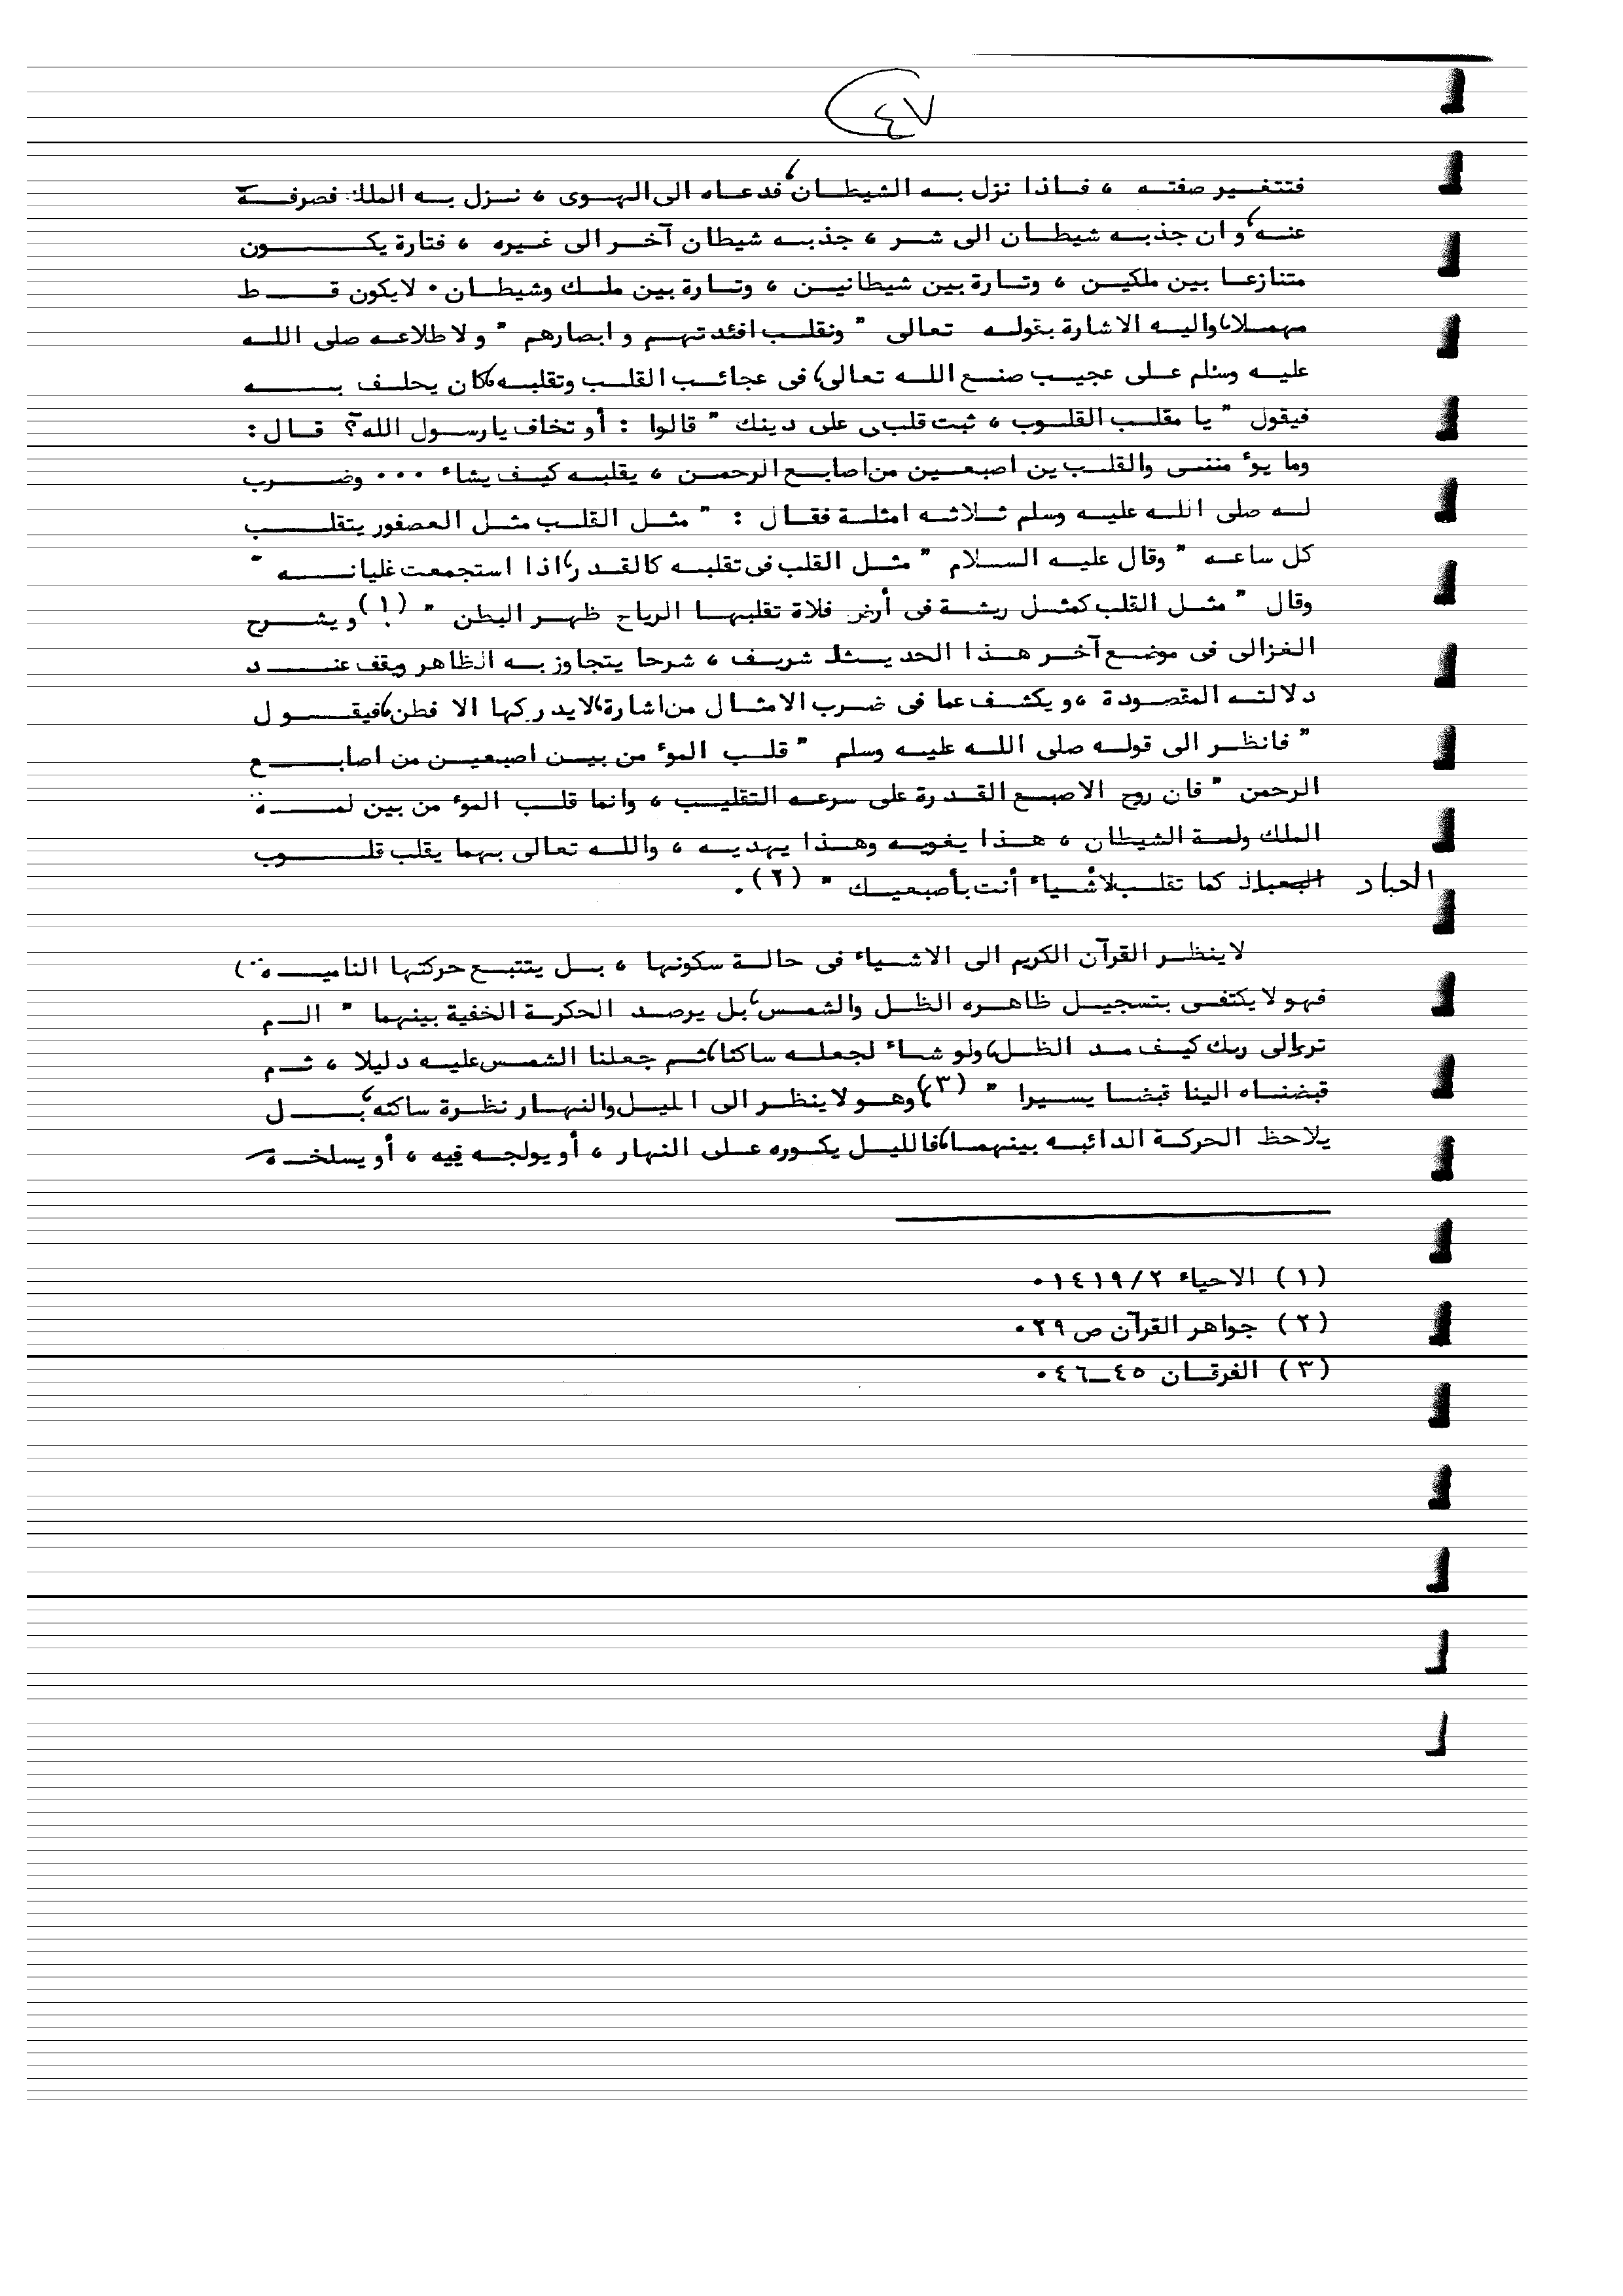 ٤٧
فتتغير صفته ، فاذا نزل به الشيطان، فدعاه الى الهوى ، نزل به الملك فصرفه
عنه، و ان جذبه شيطان الى شر ، جذبه شيطان آخر الى غيره ، فتارة يكون
متنازعا بين ملكين ، وتارة بين شيطانين ، وتارة بين ملك وشيطان ٠ لايكون قط
مهملا، واليه الاشارة بقوله تعالى " ونقلب افئدتهم و ابصارهم " و لاطلاعه صلى الله
عليه وسلم على عجيب صنع الله تعالى، فى عجائب القلب وتقلبه، كان يحلف به
فيقول " يا مقلب القلوب ، ثبت قلبى على دينك " قالوا : أو تخاف يارسول الله؟ قال :
وما يوء مننى والقلب ين اصبعين من اصابع الرحمن ، يقلبه كيف يشاء ٠٠٠ وضرب
له صلى الله عليه وسلم ثلاثه امثلة فقال : " مثل القلب مثل العصفور يتقلب
كل ساعه " وقال عليه السلام " مثل القلب فى تقلبه كالقدر، اذا استجمعت غليانه "
وقال " مثل القلب كمثل ريشة فى أرض فلاة تقلبها الرياح ظهر البطن " (١) و يشرح
الغزالى فى موضع آخر هذا الحديث شريف ، شرحا يتجاوز به الظاهر ويقف عند
دلالته المقصودة ، و يكشف عما فى ضرب الامثال من اشارة، لايدركها الا فطن، فيقول
" فانظر الى قوله صلى الله عليه وسلم " قلب الموء من بين اصبعين من اصابع
الرحمن " فان روح الاصبع القدرة على سرعه التقليب ، وانما قلب الموء من بين لمة
الملك ولمة الشيطان ، هذا يغويه وهذا يهديه ، والله تعالى بهما يقلب قلوب
الحبار كما تقلب لاشياء أنت بأصبعيك " (٢) ٠
لاينظر القرآن الكريم الى الاشياء فى حالة سكونها ، بل يتتبع حركتها الناميه ،
فهو لايكتفى بتسجيل ظاهره الظل والشمس، بل يرصد الحكرة الخفية بينهما " الم
تر الى ربك كيف مد الظل، ولو شاء لجعله ساكنا، ثم جعلنا الشمس عليه دليلا ، ثم
قبضناه الينا قبضا يسيرا " (٣) وهو لاينظر الى الليل والنهار نظرة ساكنه، بل
يلاحظ الحركة الدائبه بينهما، فالليل يكوره على النهار ، أو يولجه فيه ، أو يسلخه
(١) الاحياء ١٤١٩/٢ ٠
(٢) جواهر القرآن ص ٢٩ ٠
(٣) الفرقان ٤٥ــ٤٦ ٠